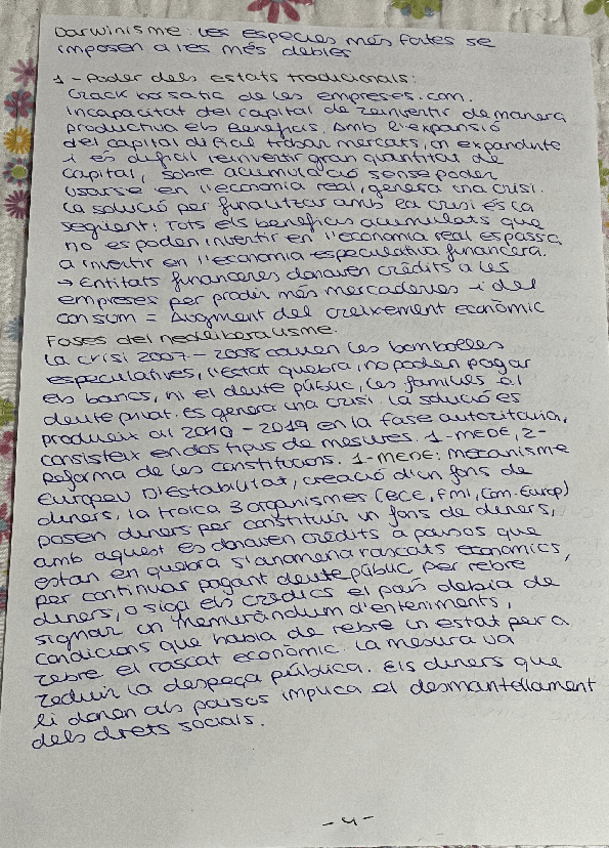 Darwinisme: les especies más fortes se
imposen a les més debles
1 - Poder dels estats tradicionals:
Crack borsatic de les empreses.com.
Incapacitat del capital de reinvertir de manera
productiva els beneficis. Amb l'expansió
del capital difícil trobar mercats, on expandirte
i és dificil reinvertir gran quantitat de
capital, sobre acumulació sense poder
usarse en l'economia real, genera una crisi.
La solució per finalitzar amb la crisi és la
seguent: Tots els beneficis acumulats que
no es poden invertir en l'economia real es passa
a invertir en l'economia especulativa financera.
→ Entitats financeres donaven crèdits a les
empreses per produir més mercaderies i del
consum = Augment del creixement econòmic
Fases del neoliberalisme.
La crisi 2007-2008 cauen les bombolles
especulatives, l'estat quebra, no poden pagar
els bancs, ni el deute públic, les families el
deute privat. es genera una crisi. La solució es
produeix al 2010-2019 en la fase autoritaria,
consisteix en dos tipus de mesures. 1-MEDE, 2-
Reforma de les constitucions. 1-MEDE: Mecanisme
Europeu D'Estabilitat, creació d'un fons de
diners, la troica 3 organismes (BCE, FMI, Com. Europ)
posen diners per constituir un fons de diners,
amb aquest es donaven crèdits a països que
estan en quebra s'anomena rascats econòmics,
per continuar pagant deute públic per rebre
diners, o sigui els crèdits el país debia de
signar un memuràndum d'enteniments,
condicions que habia de rebre un estat per a
rebre el rascat econòmic. La mesura va
reduir la despeça pública. Els diners que
li donen als països implica el desmantellament
dels drets socials.
-4-